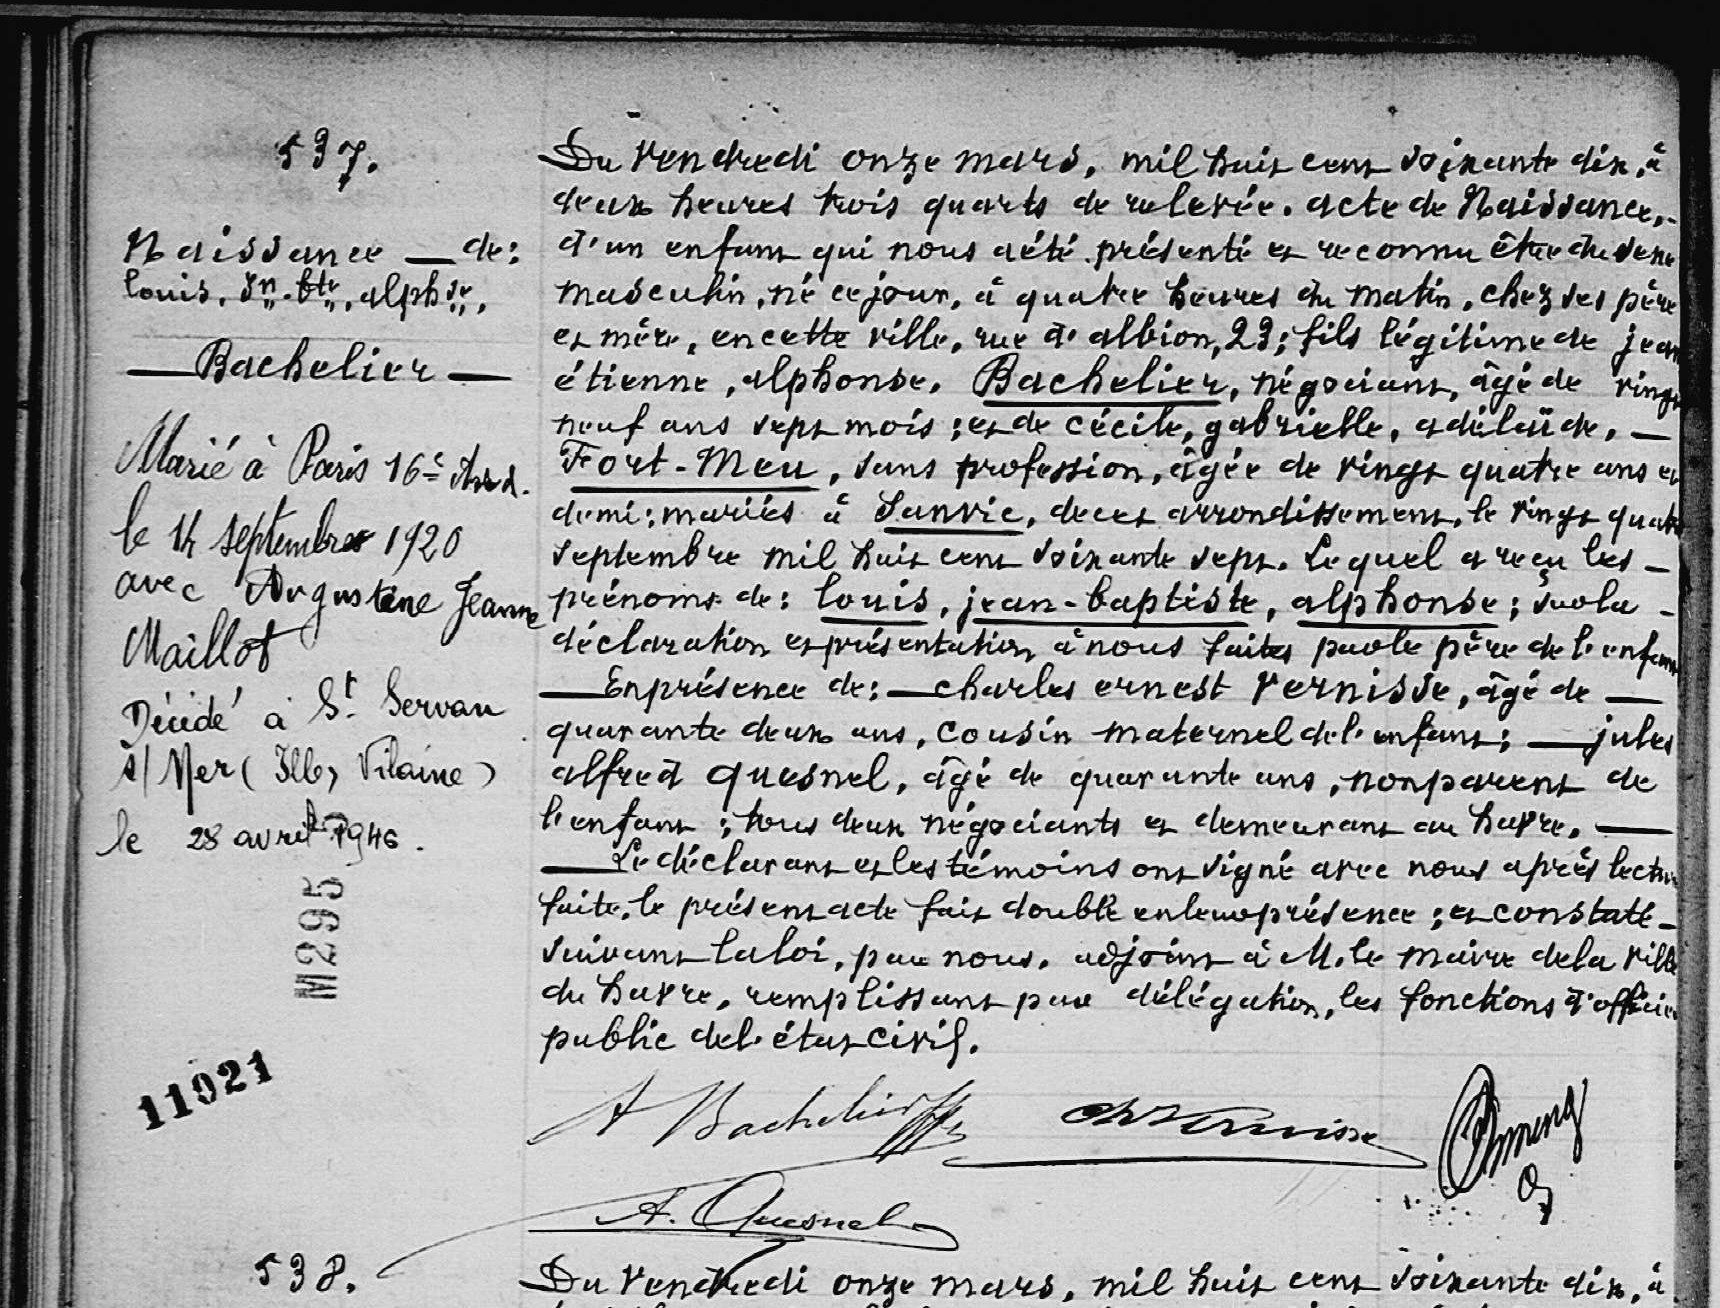 537.
Naissance — de:
louis, Jn.-bte, alphse,
— Bachelier —
Marié à Paris 16e Arrd.
le 14 septembre 1920
avec Augustine Jeanne
Maillot
Décidé à St. Servan
s/ Mer (Ille, Vilaine)
le 28 avril 1946.
M295
11921
Du Vendredi onze mars, mil huit cent soixante dix, à
deux heures trois quarts de relevée. acte de Naissance,-
d'un enfant qui nous a été présenté et reconnu être du sexe
masculin, né ce jour, à quatre heures du matin, chez ses père
et mère, en cette ville, rue d'albion, 23; fils légitime de jean
étienne, alphonse, Bachelier, négociant, âgé de vingt
neuf ans sept mois; et de cécile, gabrielle, adélaïde, —
Fort-Meu, sans profession, âgée de vingt quatre ans et
demi; mariés à Sanvic, de cet arrondissement, le vingt quatre
septembre mil huit cent soixante sept. Lequel a reçu les —
prénoms de: louis, jean-baptiste, alphonse; sur la -
déclaration et présentation à nous faites par le père de l'enfant
— En présence de: — charles ernest Vernisse, âgé de —
quarante deux ans, cousin maternel de l'enfant; — jules
alfred quesnel, âgé de quarante ans, non parent de
l'enfant; tous deux négociants et demeurant au havre. —
— Le déclarant et les témoins ont signé avec nous après lecture
faite, le présent acte fait double en leur présence; et constaté -
suivant la loi, par nous, adjoint à M. le maire de la ville
du havre, remplissant par délégation, les fonctions d'officier
public de l'état civil.
A Bachelier
Ch Vernisse
A. Quesnel
538.
Du Vendredi onze mars, mil huit cent soixante dix, à